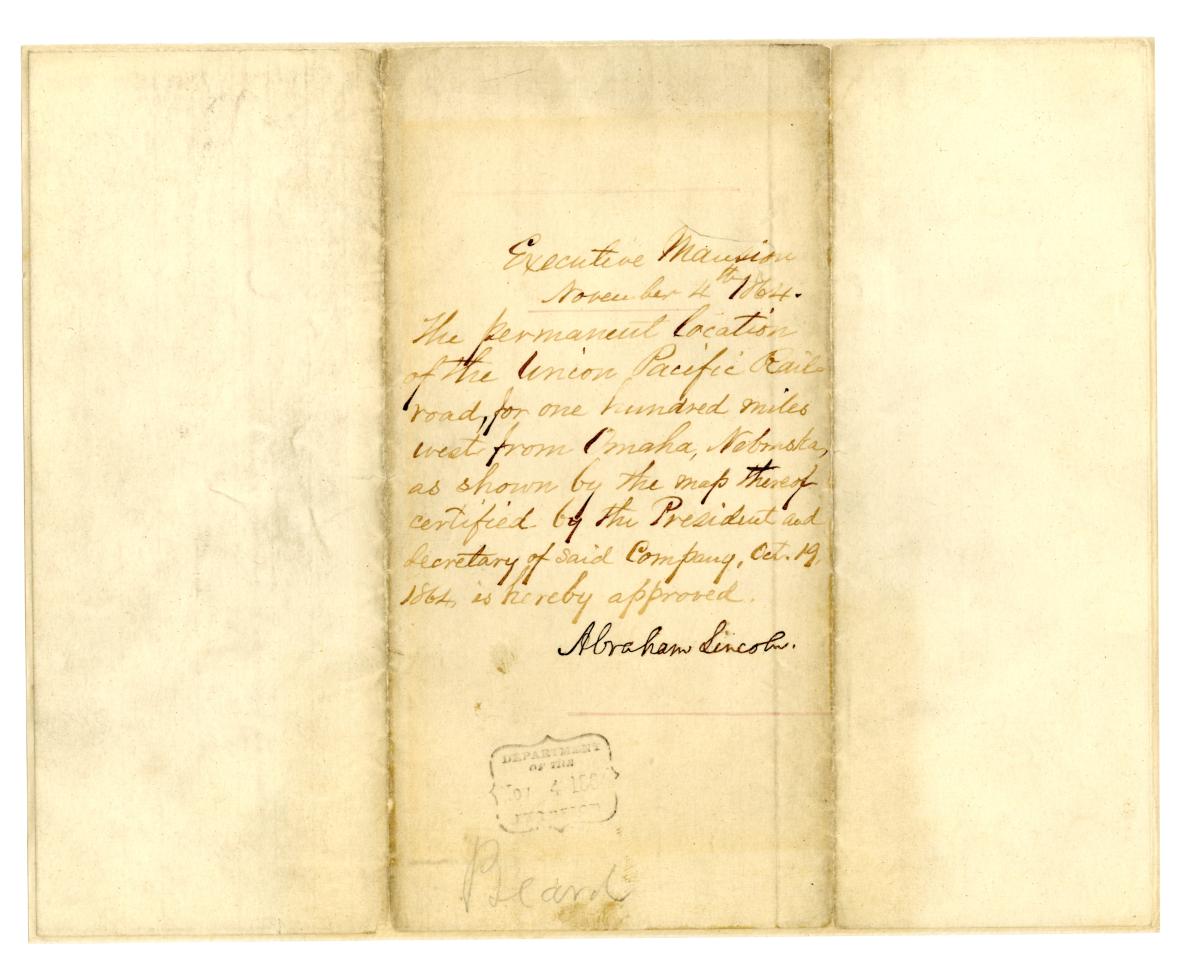 Executive Mansion
November 4th 1864.
The permanent location
of the Union Pacific Rail-
road, for one hundred miles
west from Omaha, Nebraska,
as shown by the map thereof
certified by the President and
Secretary of said Company, Oct. 19,
1864, is hereby approved.
Abraham Lincoln.
DEPARTMENT
OF THE
Nov 4 1864
INTERIOR
Beard